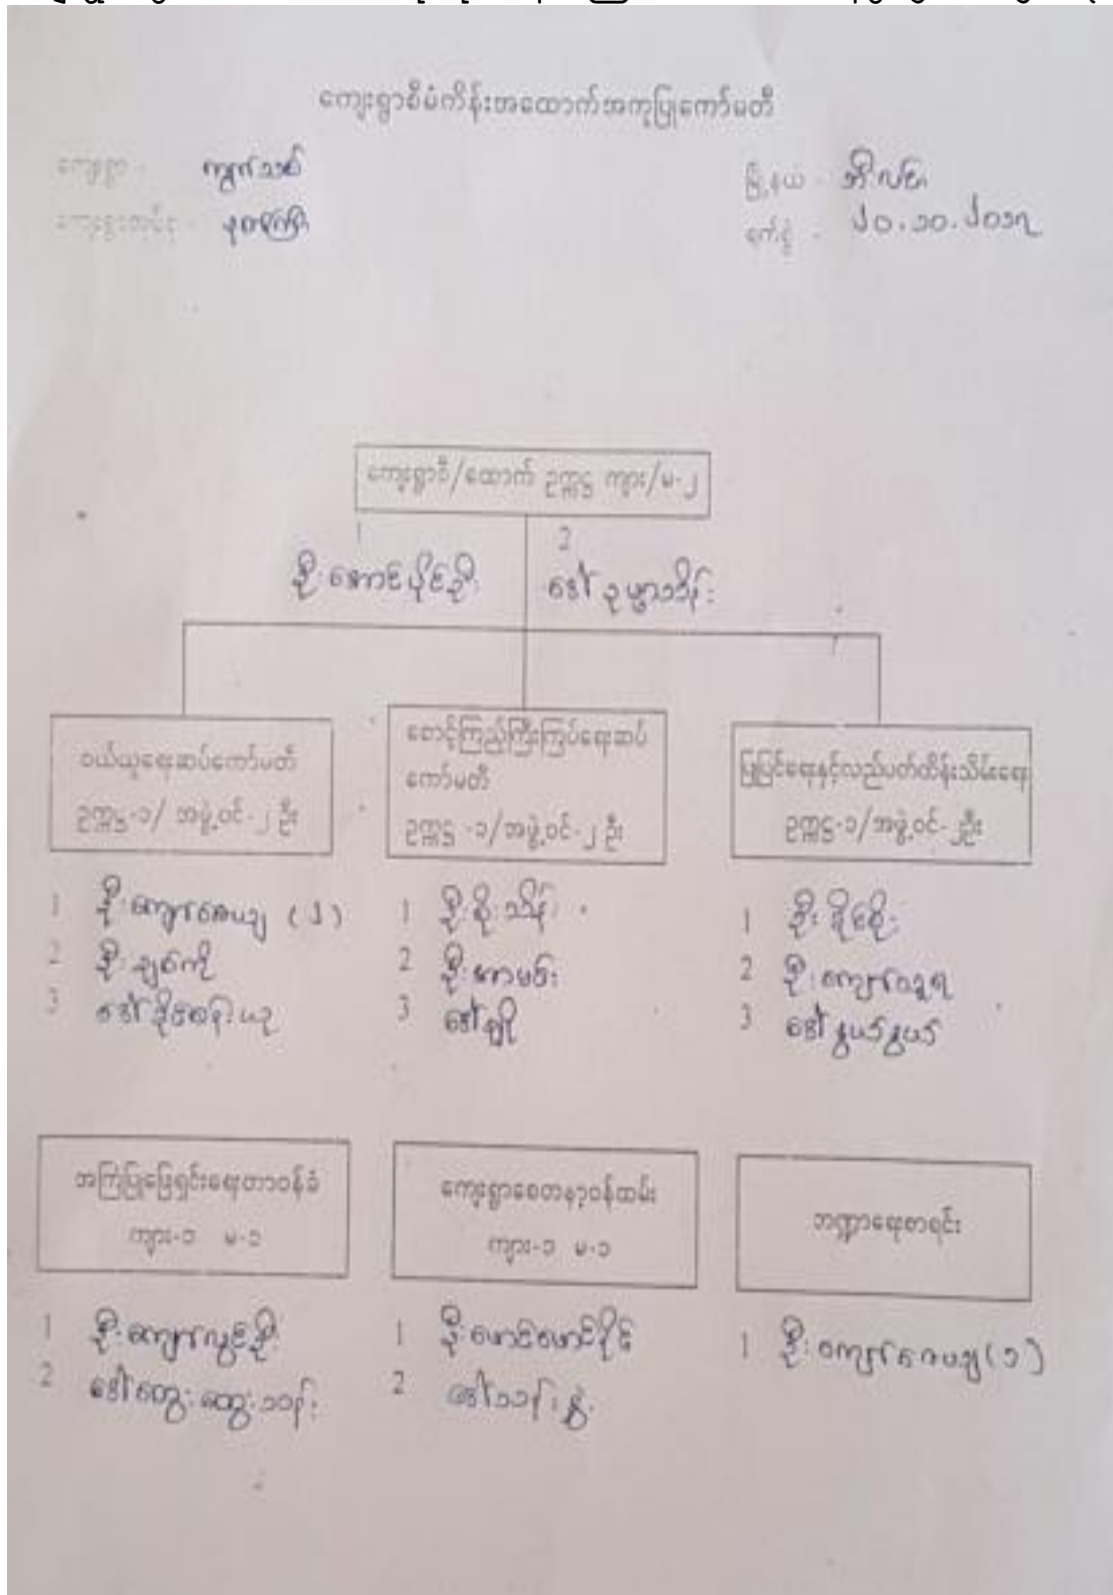 ကျေးရွာစီမံကိန်းအထောက်အကူပြုကော်မတီ
ကျေးရွာ - ကျွဲသစ်
မြို့နယ် - ဘီးလင်း
ကျေးရွာအုပ်စု -
ရက်စွဲ - ၂၀.၁၀.၂၀၁၇
ကျေးရွာစီ/ထောက် ဥက္ကဋ္ဌ ကျား/မ-၂
1 ဦးအောင်ပိုင်ဦး
2 ဒေါ်ဥမ္မာသိန်း
ဝယ်ယူရေးဆပ်ကော်မတီ
ဥက္ကဋ္ဌ-၁/ အဖွဲ့ဝင်-၂ ဦး
1 ဦးကျော်ဇေယျ (၂)
2 ဦးချစ်ကို
3 ဒေါ်ခိုင်ဇာနည်
စောင့်ကြည့်ကြီးကြပ်ရေးဆပ်
ကော်မတီ
ဥက္ကဋ္ဌ -၁/အဖွဲ့ဝင်-၂ ဦး
1 ဦးစိုးသိန်း
2 ဦးအာမင်း
3 ဒေါ်ချို
ပြုပြင်ရေးနှင့်လည်ပတ်ထိန်းသိမ်းရေး
ဥက္ကဋ္ဌ-၁/အဖွဲ့ဝင်-၂ဦး
1 ဦးခိုင်စိုး
2 ဦးကျော်သူရ
3 ဒေါ်နွယ်နွယ်
အကြံပြုဖြေရှင်းရေးတာဝန်ခံ
ကျား-၁ မ-၁
1 ဦးကျော်လွင်ဦး
2 ဒေါ်ထွေးထွေးသန်း
ကျေးရွာစေတနာ့ဝန်ထမ်း
ကျား-၁ မ-၁
1 ဦးမောင်မောင်ပိုင်
2 ဒေါ်သန်းနွဲ့
ဘဏ္ဍာရေးစာရင်း
1 ဦးကျော်ဇေယျ(၁)